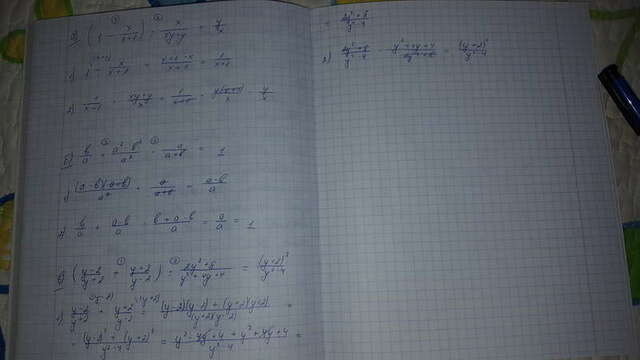 а) (1 - x/(x+1)) : x/(xy+y) = y/x
1) 1 - x/(x+1) = (x+1-x)/(x+1) = 1/(x+1)
2) 1/(x+1) · (xy+y)/x = 1/(x+1) · y(x+1)/x = y/x
б) b/a + (a²-b²)/a² · a/(a+b) = 1
1) (a-b)(a+b)/a² · a/(a+b) = (a-b)/a
2) b/a + (a-b)/a = (b+a-b)/a = a/a = 1
в) ((y-2)/(y+2) + (y+2)/(y-2)) : (2y²+8)/(y²+4y+4) = (y+2)²/(y²-4)
1) (y-2)/(y+2) + (y+2)/(y-2) = ((y-2)(y-2) + (y+2)(y+2))/((y+2)(y-2)) =
= ((y-2)² + (y+2)²)/(y²-4) = (y²-4y+4+y²+4y+4)/(y²-4) =
= (2y²+8)/(y²-4)
2) (2y²+8)/(y²-4) · (y²+4y+4)/(2y²+8) = (y+2)²/(y²-4)